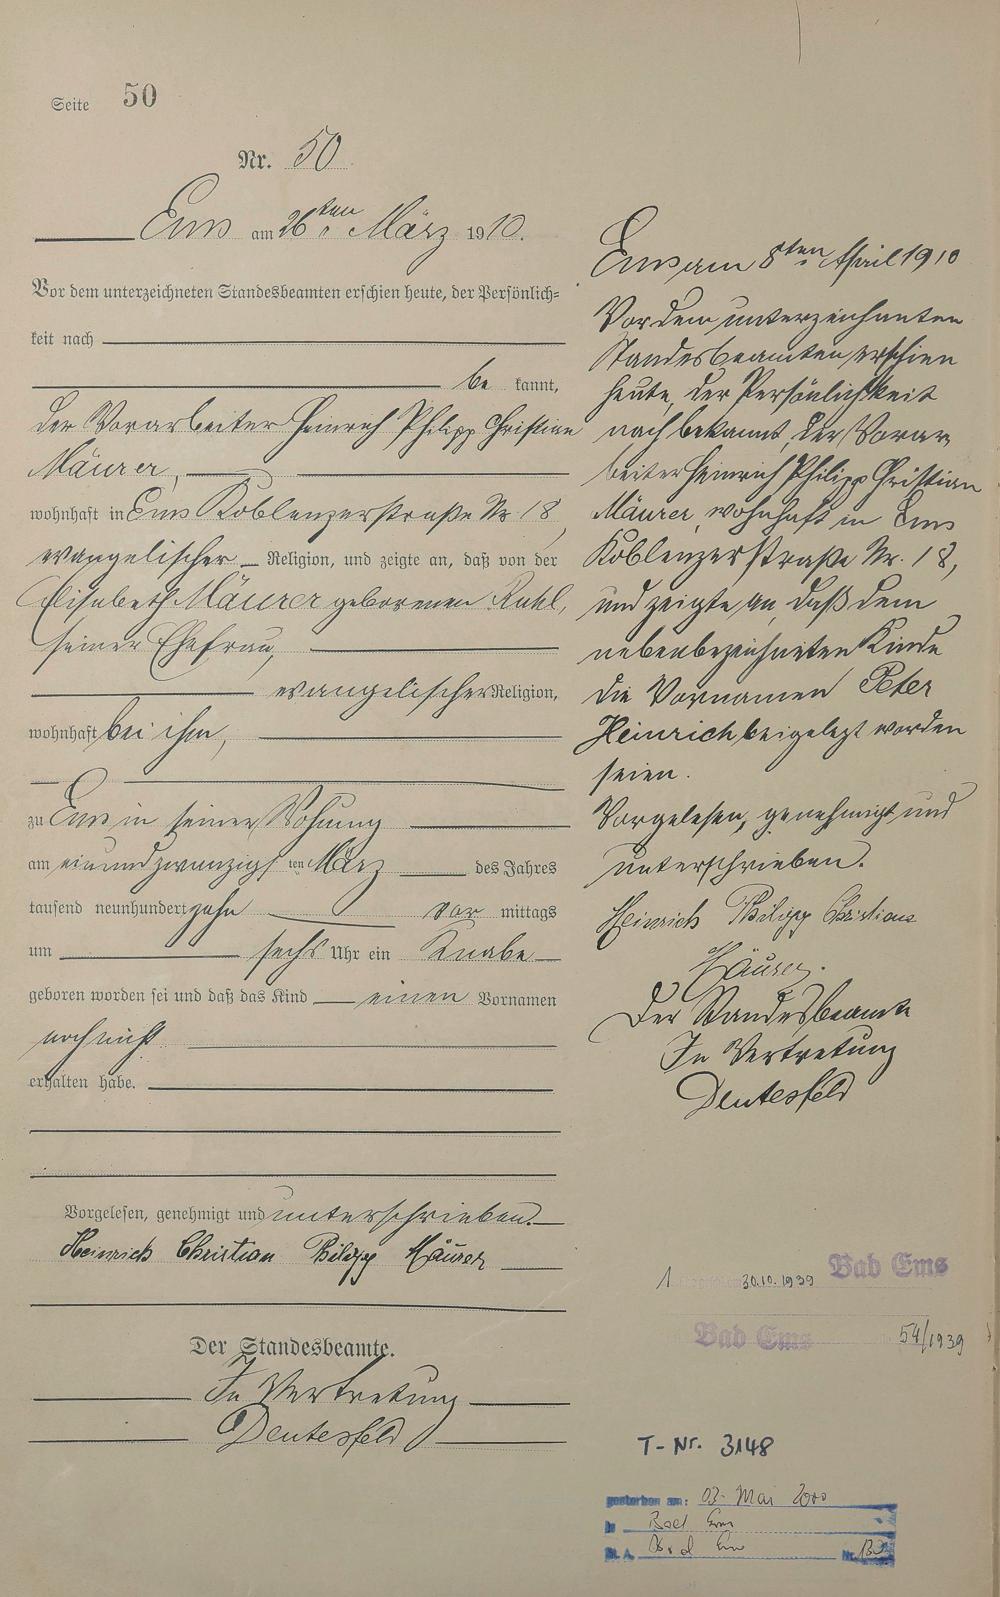 Seite 50
Nr. 50
Ems am 26ten März 1910.
Vor dem unterzeichneten Standesbeamten erschien heute, der Persönlich=
keit nach
be kannt,
der Vorarbeiter Heinrich Philipp Christian
Mäurer,
wohnhaft in Ems Koblenzerstraße Nr 18,
evangelischer Religion, und zeigte an, daß von der
Elisabeth Mäurer geborenen Ruhl,
seiner Ehefrau,
evangelischer Religion,
wohnhaft bei ihm,
zu Ems in seiner Wohnung
am einundzwanzigsten März des Jahres
tausend neunhundert zehn vor mittags
um sechs Uhr ein Knabe
geboren worden sei und daß das Kind einen Vornamen
noch nicht
erhalten habe.
Vorgelesen, genehmigt und unterschrieben.
Heinrich Christian Philipp Mäurer
Der Standesbeamte.
In Vertretung
Deutesfeld
Ems am 8ten April 1910
Vor dem unterzeichneten
Standesbeamten erschien
heute, der Persönlichkeit
nach bekannt, der Vorar
beiter Heinrich Philipp Christian
Mäurer, wohnhaft in Ems
Koblenzerstraße Nr. 18,
und zeigte an, daß dem
nebenbezeichneten Kinde
die Vornamen Peter
Heinrich beigelegt worden
seien.
Vorgelesen, genehmigt und
unterschrieben.
Heinrich Philipp Christian
Mäurer.
Der Standesbeamte
In Vertretung
Deutesfeld
1 30.10.1939 Bad Ems
Bad Ems 54/1939
T-Nr. 3148
gestorben am: 03. Mai 2000
in Bad Ems
St. A. Bad Ems Nr.